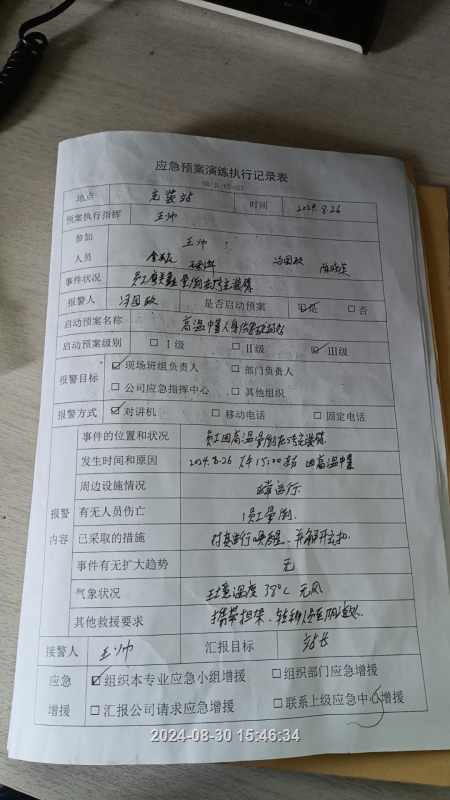 应急预案演练执行记录表
地点 充装站 时间 2024.8.26
预案执行指挥 王帅
参加 王帅
人员 冯国政
事件状况
报警人 冯国政 是否启动预案 ☑是 □否
启动预案名称
启动预案级别 □Ⅰ级 □Ⅱ级 ☑Ⅲ级
报警目标 ☑现场班组负责人 □部门负责人
□公司应急指挥中心 □其他组织
报警方式 ☑对讲机 □移动电话 □固定电话
报警内容 事件的位置和状况 员工因高温晕倒在
发生时间和原因 2024.8.26 下午15:00左右 因高温中暑
周边设施情况 正常运行
有无人员伤亡 1员工晕倒.
已采取的措施 对其进行唤醒、并解开衣扣
事件有无扩大趋势 无
气象状况 环境温度38℃ 无风
其他救援要求 携带担架、
接警人 王帅 汇报目标 站长
应急 ☑组织本专业应急小组增援 □组织部门应急增援
增援 □汇报公司请求应急增援 □联系上级应急中心增援
2024-08-30 15:46:34